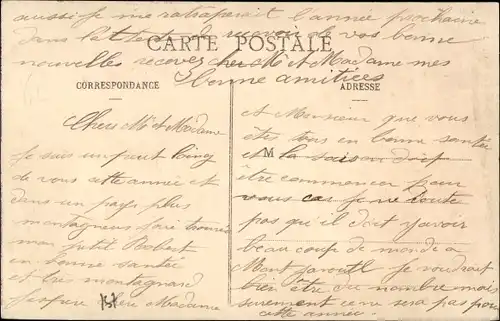 CARTE POSTALE
CORRESPONDANCE
ADRESSE
M
Chers Mr et Madame
Je suis un peut loing
de vous cette année et
dans un pays plus
montagneux
mon petit Robert
en bonne santée
et tres montagnard
Madame
et Monsieur que vous
êtes tous en bonne santée
et la saison doit
être commencer pour
vous car je ne doute
pas qu'il doit y avoir
beau coup de monde a
Mont je voudrait
bien être du nombre mais
surement ce ne sera pas pour
cette année.
aussi je me ratraperait l'année prochaine
dans l'attente de recevoir de vos bonne
nouvelles recevez cher Mr et Madame mes
bonne amitiées